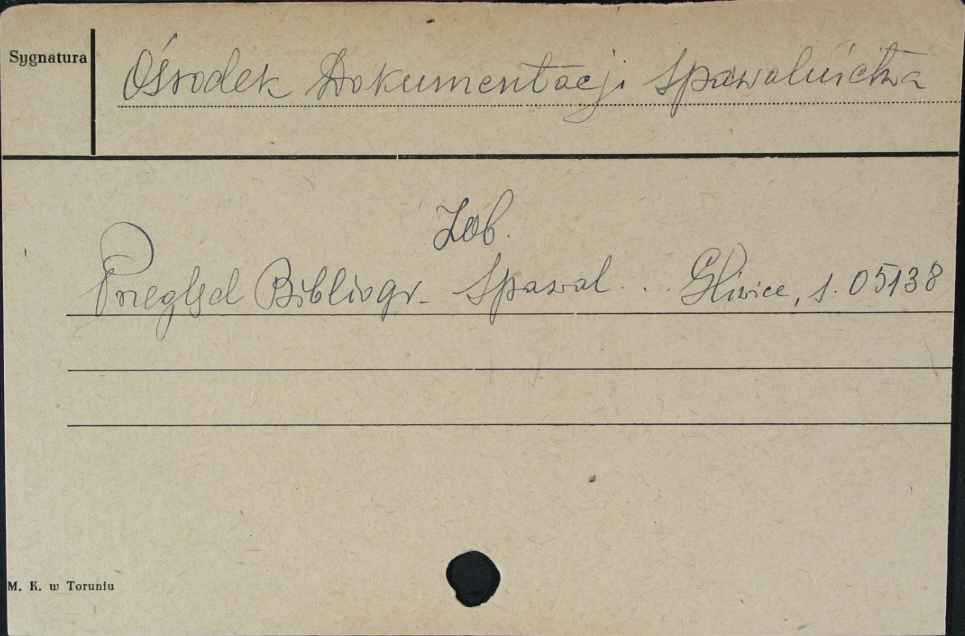 Sygnatura
Ośrodek Dokumentacji Spawalnictwa
Zob.
Przegląd Bibliogr. Spawal... Gliwice, s. 05138
M. K. w Toruniu